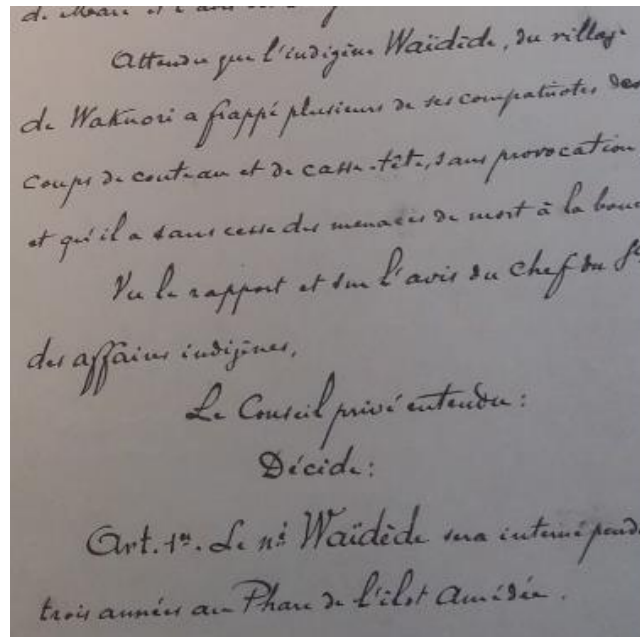 de Maré et l'avis du
Attendu que l'indigène Waïdède, du village
de Wakuori a frappé plusieurs de ses compatriotes des
coups de couteau et de casse-tête, sans provocation
et qu'il a sans cesse des menaces de mort à la bouc
Vu le rapport et sur l'avis du Chef du S
des affaires indigènes,
Le Conseil privé entendu :
Décide :
Art. 1er. Le né Waïdède sera interné pend
trois années au Phare de l'ilot Amédée.